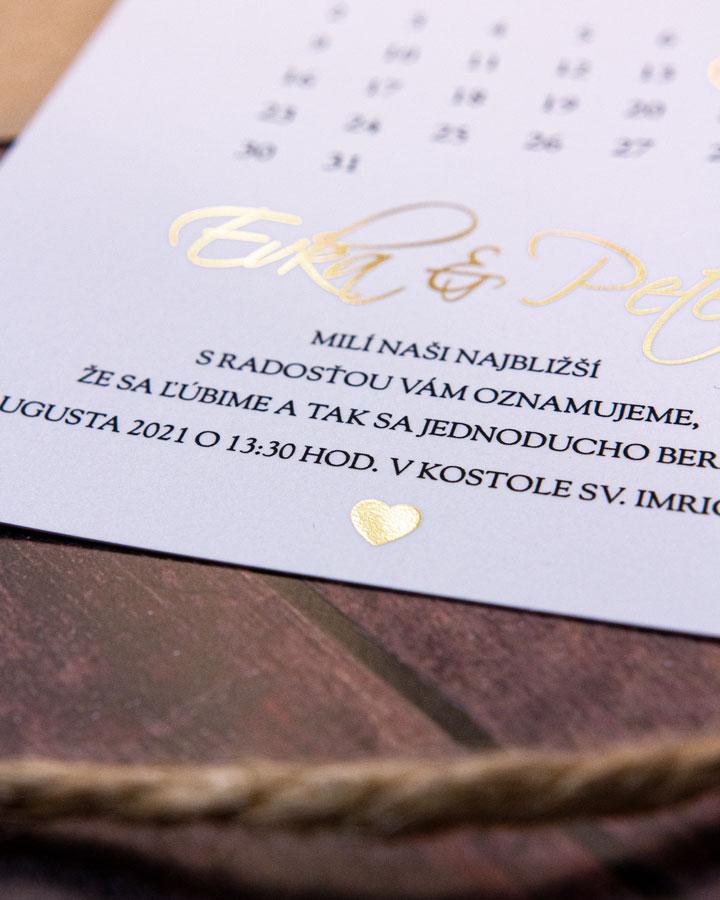 2 3 4 5 6
9 10 11 12 13
16 17 18 19 20
23 24 25 26 27
30 31
Evka & Pete
MILÍ NAŠI NAJBLIŽŠÍ
S RADOSŤOU VÁM OZNAMUJEME,
ŽE SA ĽÚBIME A TAK SA JEDNODUCHO BER
UGUSTA 2021 O 13:30 HOD. V KOSTOLE SV. IMRIC